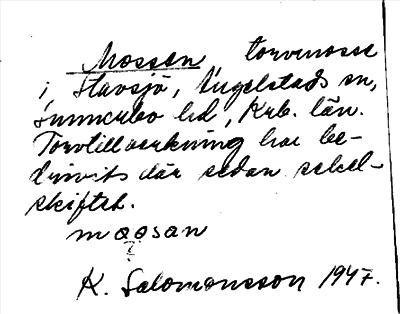 Mossen, torvmosse
i Stavsjö, Angelstads sn,
Sunnerbo hd, Krb. län.
Torvtillverkning har be-
drivits där sedan sekel-
skiftet.
mɷɷsan
K. Salomonsson 1947.